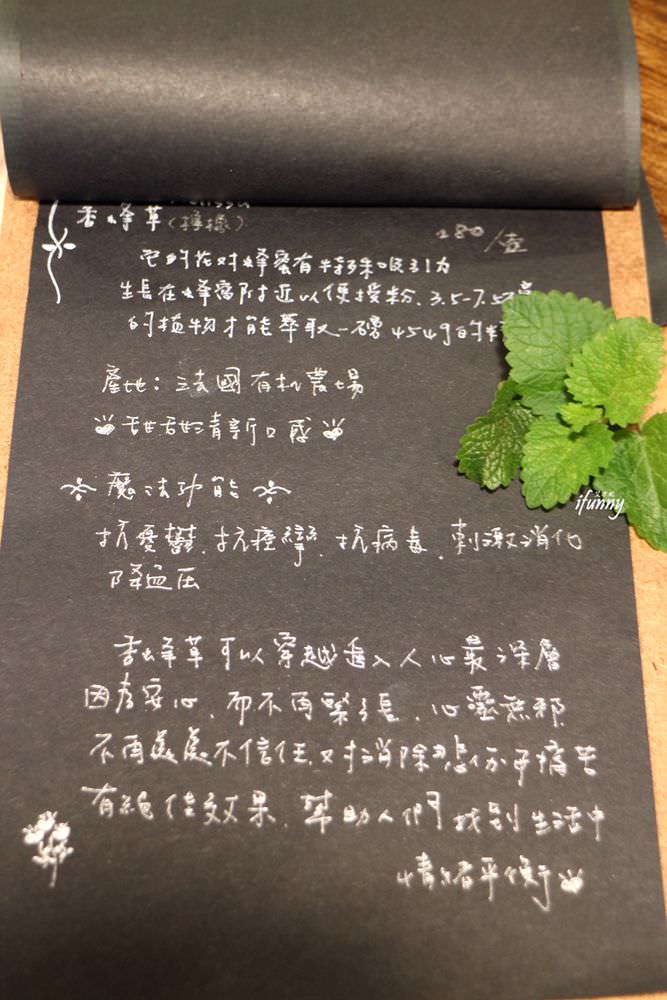 香蜂草(檸檬)
280/壺
它的花對蜂蜜有特殊吸引力
生長在蜂窩附近以便授粉.3.5-7.5噸
的植物才能萃取一磅454g的精
產地:法國有机農場
甜甜清新口感
魔法功能
抗憂鬱.抗痙攣.抗病毒.刺激消化
降血压
香蜂草可以穿越進入人心最深層
因為安心.而不再緊張.心靈無邪
不再處處不信任.对消除悲伤平痛苦
有絕佳效果.幫助人們找到生活中
情緒平衡
ifunny